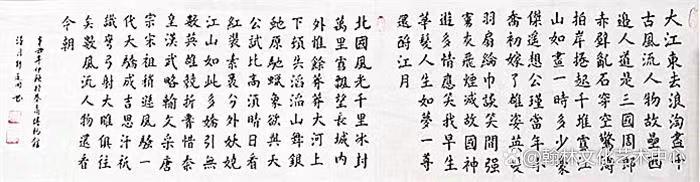 大江東去浪淘盡千
古風流人物故壘西
邊人道是三國周郎
赤壁亂石穿空驚濤
拍岸捲起千堆雪江
山如畫一時多少豪
傑遥想公瑾當年小
喬初嫁了雄姿英發
羽扇綸巾談笑間強
虜灰飛煙滅故國神
遊多情應笑我早生
華髮人生如夢一尊
還酹江月
北國風光千里冰封
萬里雪飄望長城内
外惟餘莽莽大河上
下頓失滔滔山舞銀
蛇原馳蠟象欲與天
公試比高須晴日看
紅裝素裹分外妖嬈
江山如此多嬌引無
數英雄競折腰惜秦
皇漢武略輸文采唐
宗宋祖稍遜風騷一
代天驕成吉思汗祇
識彎弓射大雕俱往
矣數風流人物還看
今朝
@翰林文化艺术中心